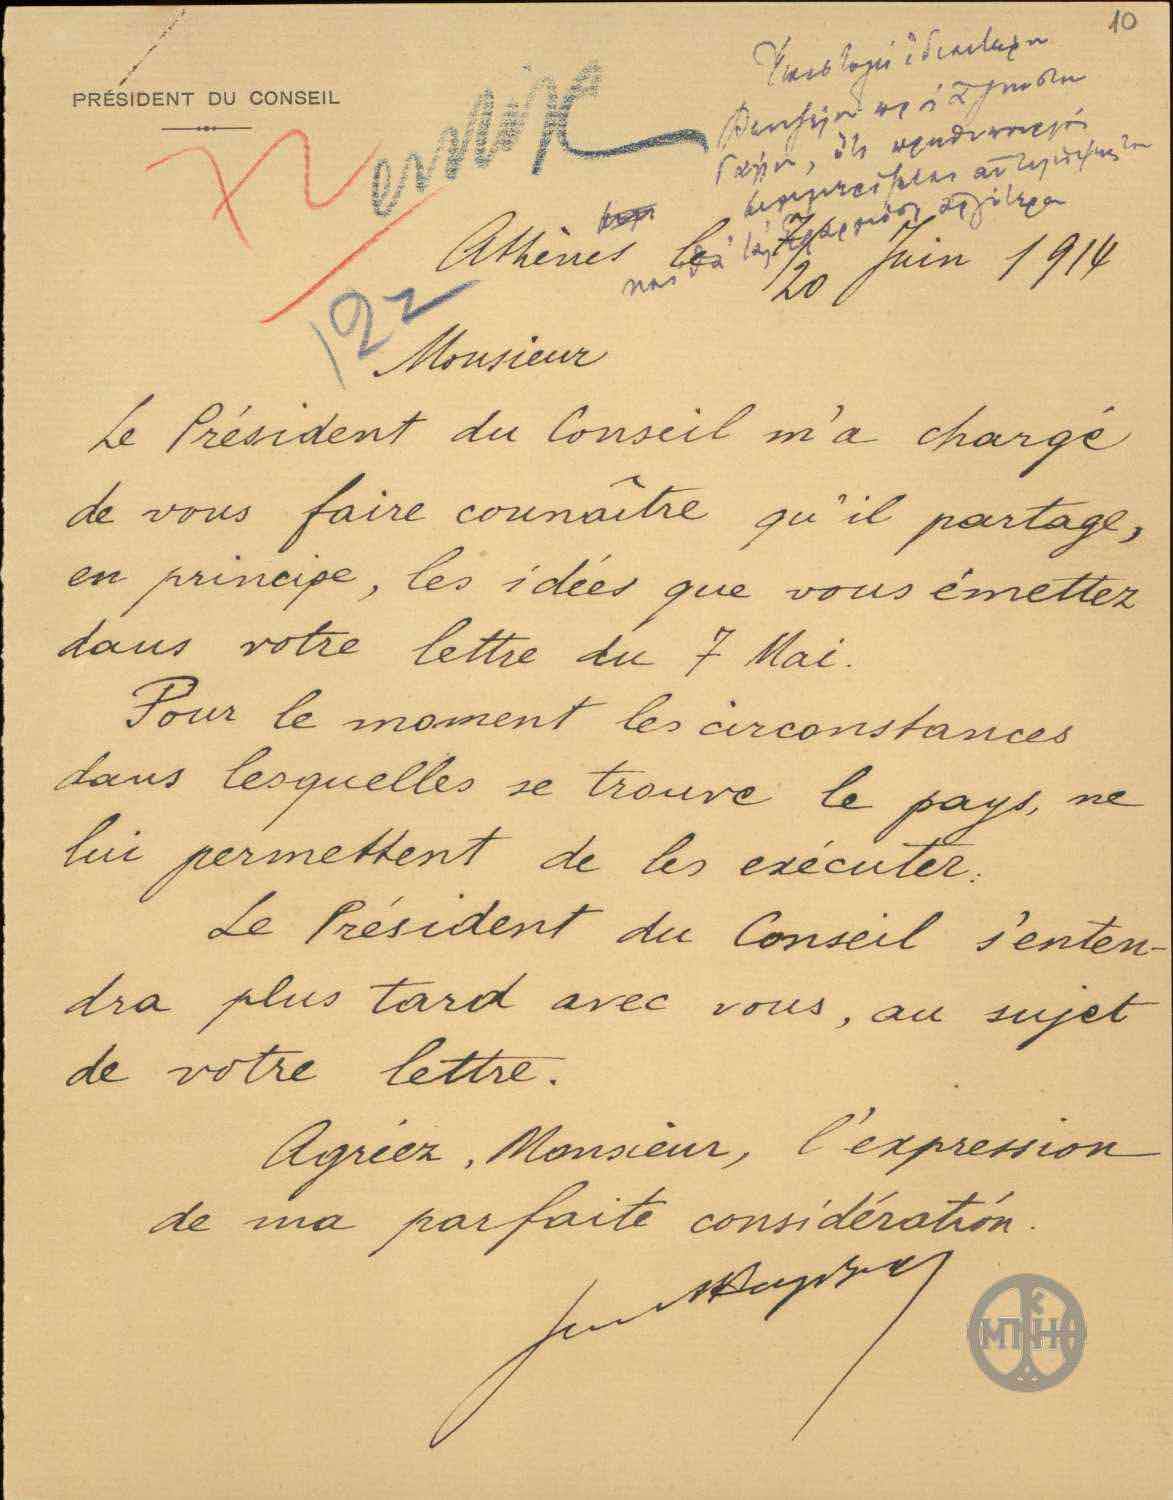 10
PRÉSIDENT DU CONSEIL
122
Athènes le 7/20 Juin 1914
Monsieur
Le Président du Conseil m'a chargé
de vous faire counaître qu'il partage,
en principe, les idées que vous émettez
dans votre lettre du 7 Mai.
Pour le moment les circonstances
dans lesquelles se trouve le pays, ne
lui permettent de les exécuter.
Le Président du Conseil s'enten-
dra plus tard avec vous, au sujet
de votre lettre.
Agréez, Monsieur, l'expression
de ma parfaite considération.